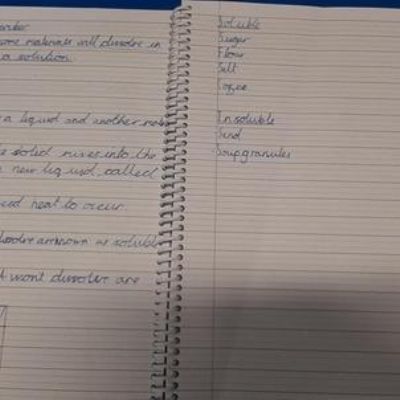 some materials will dissolve in
a solution.
a liquid and another
solid mixes into the
new liquid, called
heat to occur.
dissolve are known as soluble
wont dissolve are
Soluble
Sugar
Flour
Salt
Coffee
Insoluble
Sand
Soup granules